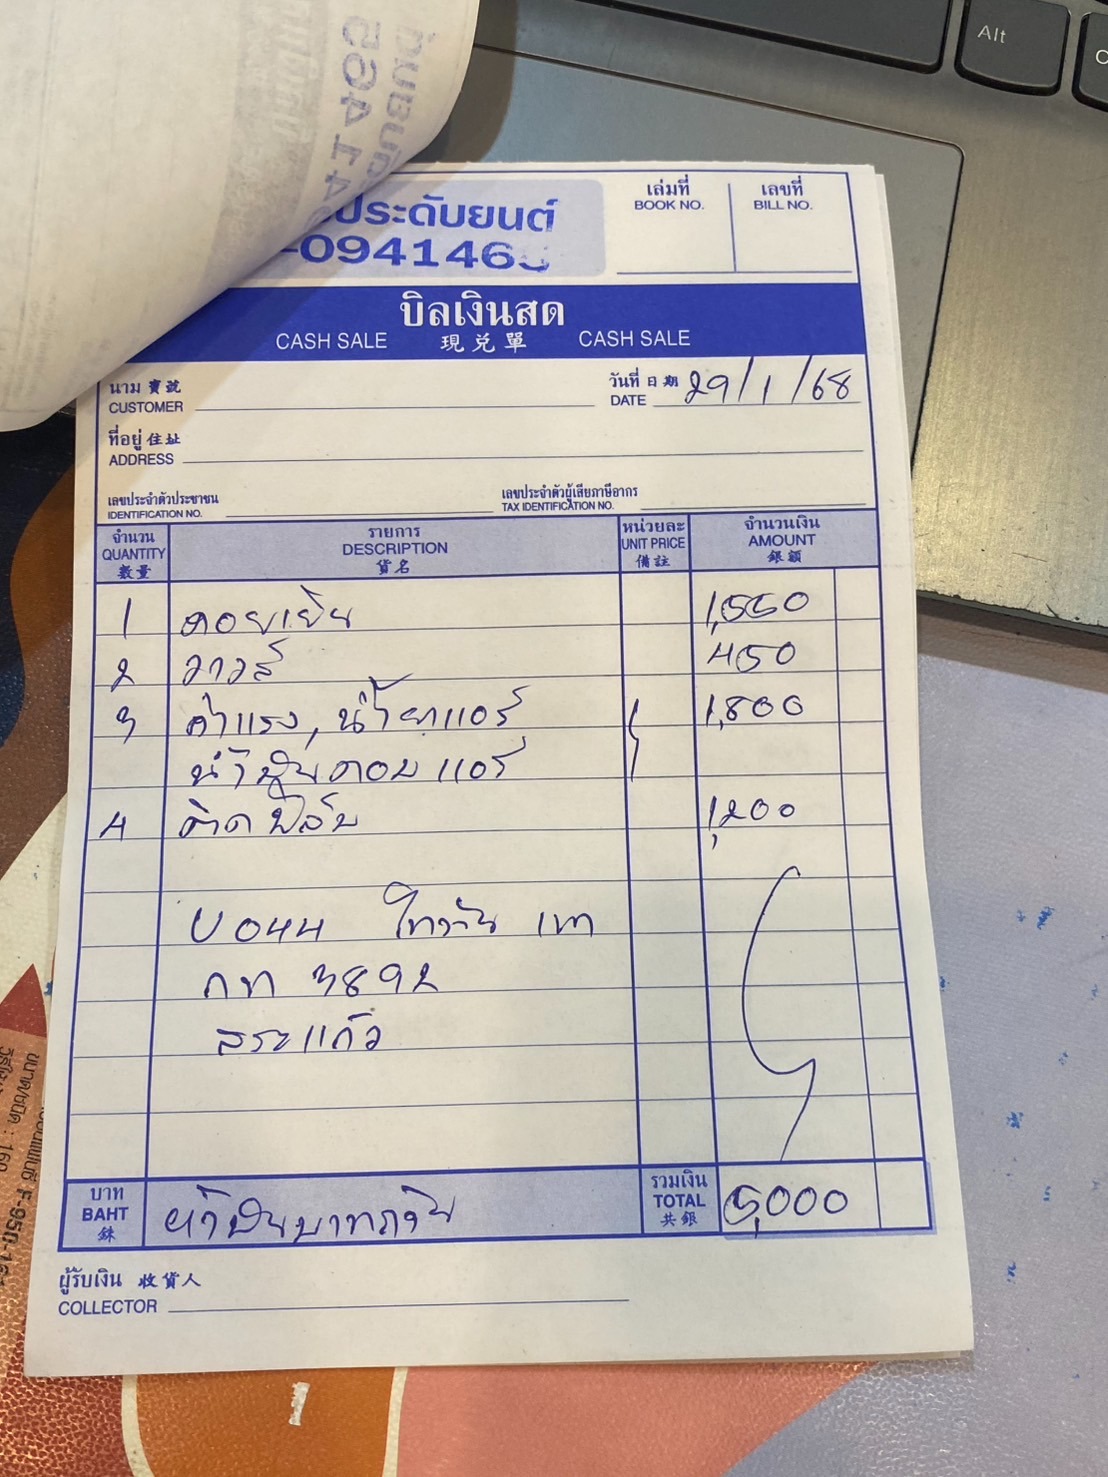 ประดับยนต์
-094146
เล่มที่
BOOK NO.
เลขที่
BILL NO.
บิลเงินสด
CASH SALE 現兑單 CASH SALE
นาม 寶號
CUSTOMER
วันที่ 日期
DATE 29/1/68
ที่อยู่ 住址
ADDRESS
เลขประจำตัวประชาชน
IDENTIFICATION NO.
เลขประจำตัวผู้เสียภาษีอากร
TAX IDENTIFICATION NO.
จำนวน
QUANTITY
數量
รายการ
DESCRIPTION
貨名
หน่วยละ
UNIT PRICE
備註
จำนวนเงิน
AMOUNT
銀額
1 คอยเย็น 1,550
2 วาวล์ 450
3 ค่าแรง, น้ำยาแอร์ 1,800
น้ำมันคอมแอร์
4 ติดฟิล์ม 1,200
U044 ไททัน เทา
กท 3892
สระแก้ว
บาท
BAHT
銖
ห้าพันบาทถ้วน
รวมเงิน
TOTAL
共銀
5,000
ผู้รับเงิน 收貨人
COLLECTOR
Alt